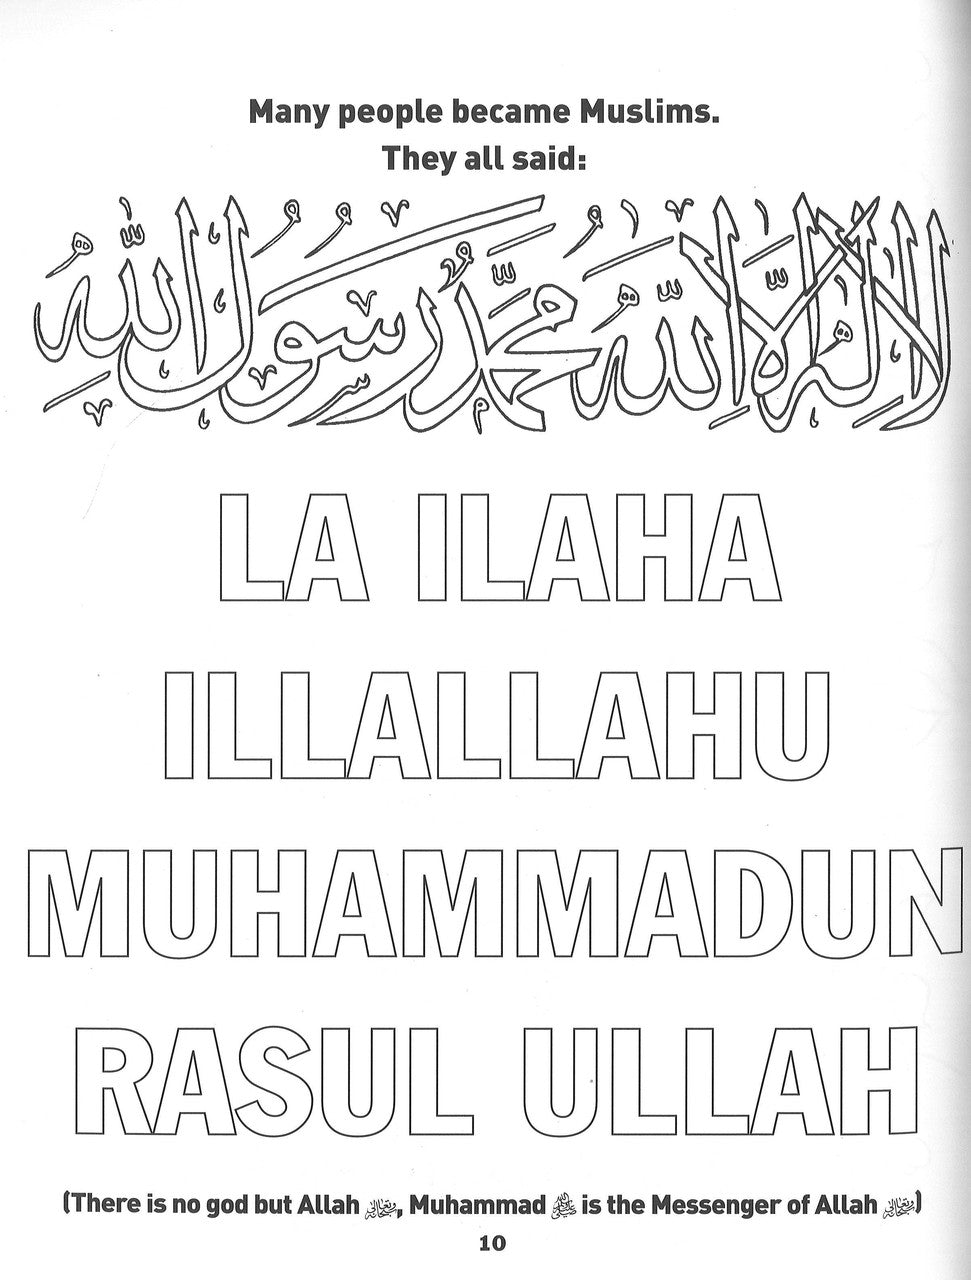 Many people became Muslims.
They all said:
لَا إِلٰهَ إِلَّا اللّٰهُ مُحَمَّدٌ رَسُولُ اللّٰهِ
LA ILAHA
ILLALLAHU
MUHAMMADUN
RASUL ULLAH
(There is no god but Allah سبحانه وتعالى, Muhammad ﷺ is the Messenger of Allah سبحانه وتعالى)
10